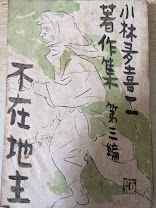 小林多喜二
著作集 第三編
不在地主